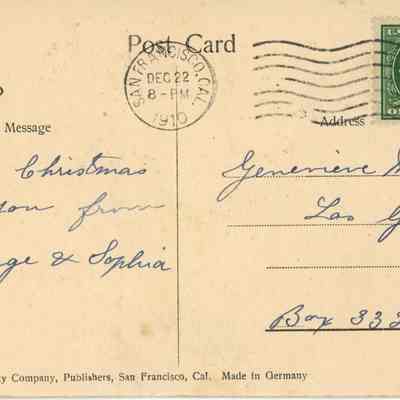 Post Card
SAN FRANCISCO, CAL.
DEC 22
8-PM
1910
Message
Address
Christmas
from
& Sophia
Genevieve
Los G
Box 332
y Company, Publishers, San Francisco, Cal. Made in Germany